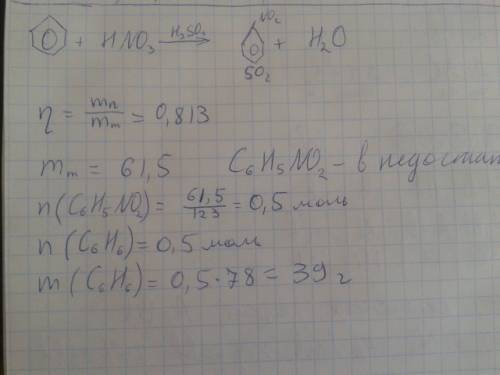 + HNO₃ —H₂SO₄→ NO₂ + H₂O
SO₂
η = mп/mт = 0,813
mт = 61,5 C₆H₅NO₂ – в недостат
n(C₆H₅NO₂) = 61,5/123 = 0,5 моль
n(C₆H₆) = 0,5 моль
m(C₆H₆) = 0,5·78 = 39 г